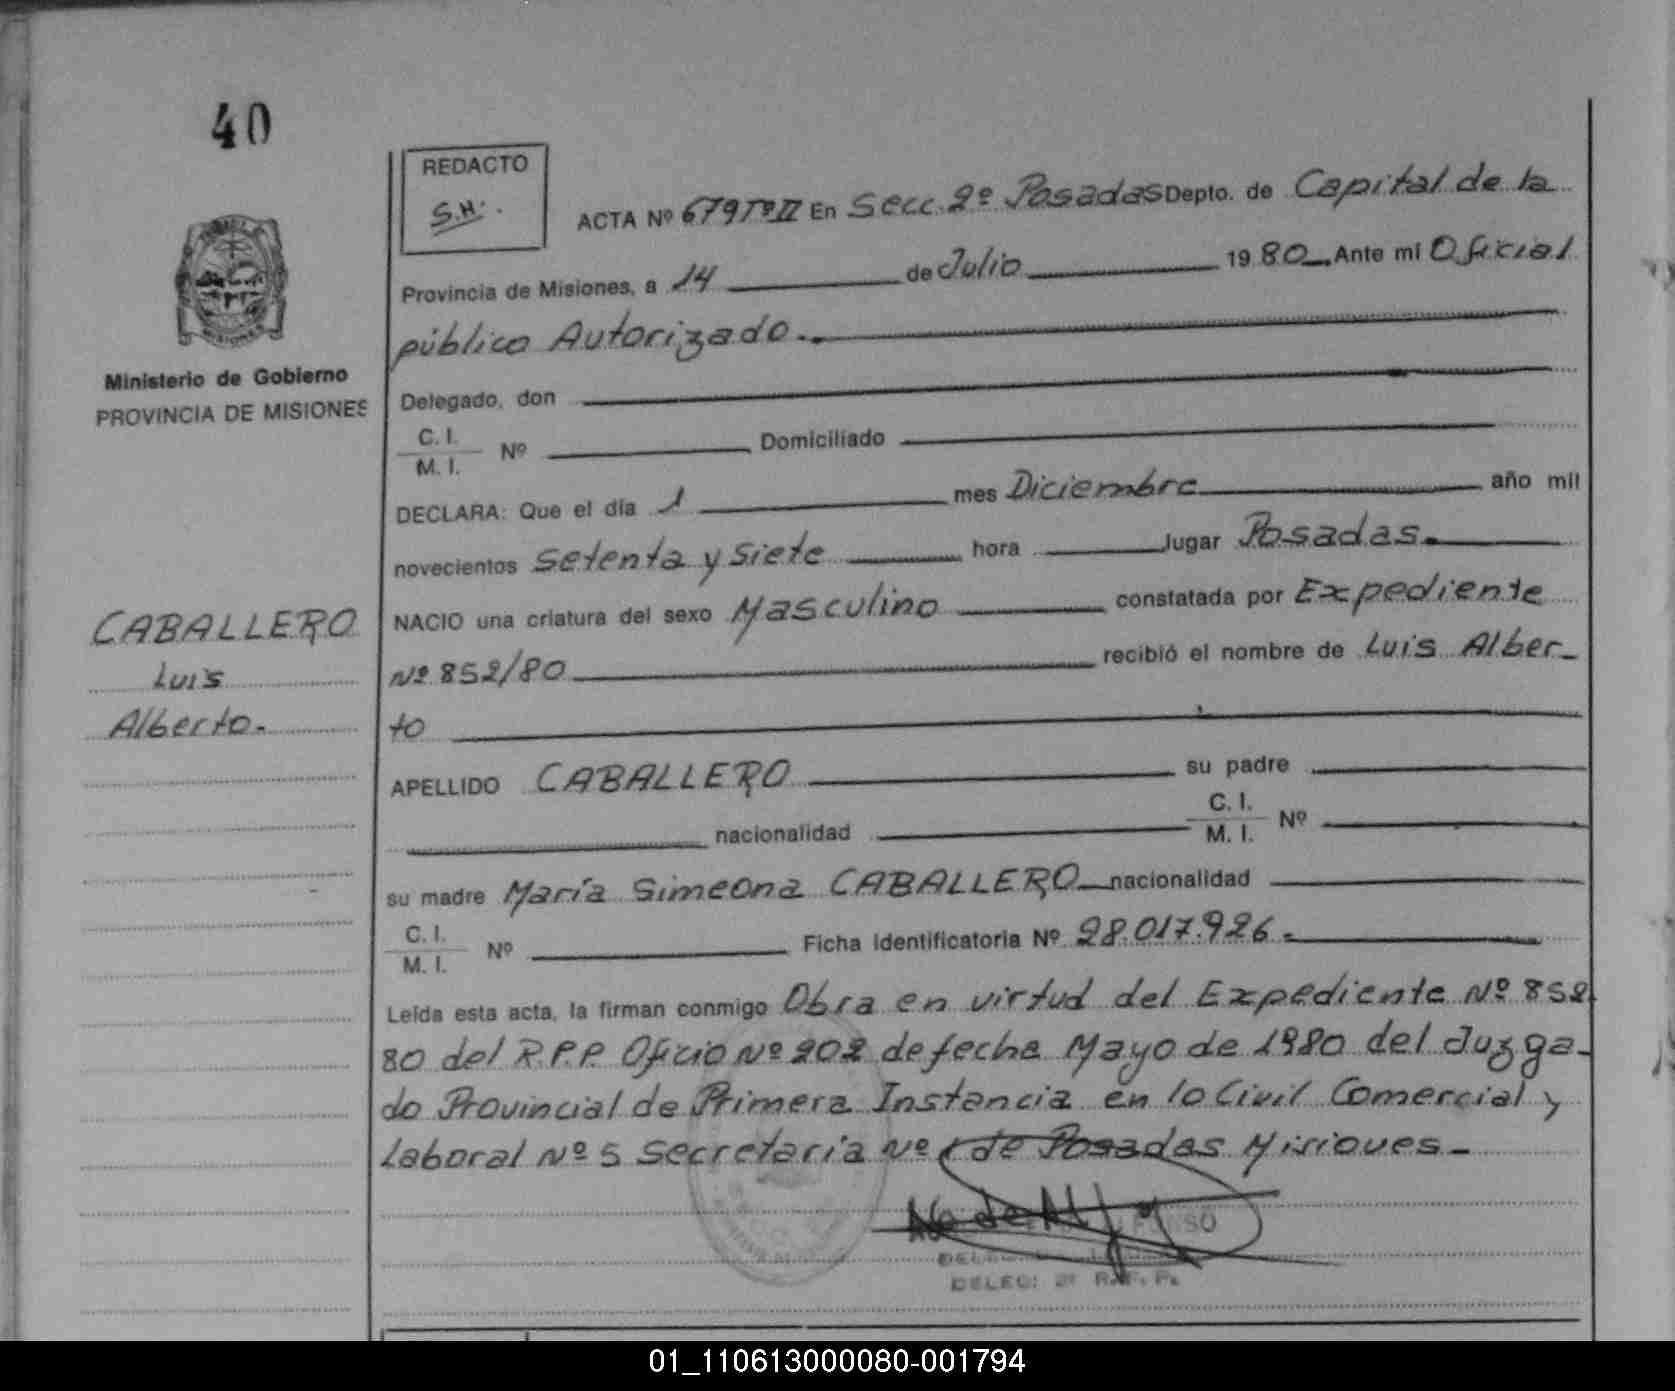 40
REDACTO
S.H.
ACTA Nº 679 Tº II En Secc. 2º Posadas Depto. de Capital de la
Provincia de Misiones, a 14 de Julio 1980 Ante mi Oficial
público Autorizado.
Ministerio de Gobierno
PROVINCIA DE MISIONES
Delegado, don
C. I.
M. I. Nº Domiciliado
DECLARA: Que el día 1 mes Diciembre año mil
novecientos setenta y siete hora lugar Posadas.
NACIO una criatura del sexo Masculino constatada por Expediente
Nº 852/80 recibió el nombre de Luis Alber-
to
CABALLERO
Luis
Alberto.
APELLIDO CABALLERO su padre
nacionalidad C. I.
M. I. Nº
su madre María Simeona CABALLERO nacionalidad
C. I.
M. I. Nº Ficha Identificatoria Nº 28.017.926.
Leída esta acta, la firman conmigo Obra en virtud del Expediente Nº 852
80 del R.P.P. Oficio Nº 202 de fecha Mayo de 1980 del Juzga-
do Provincial de Primera Instancia en lo Civil Comercial y
Laboral Nº 5 Secretaría Nº de Posadas Misiones.-
DELEG: 2º
01_110613000080-001794